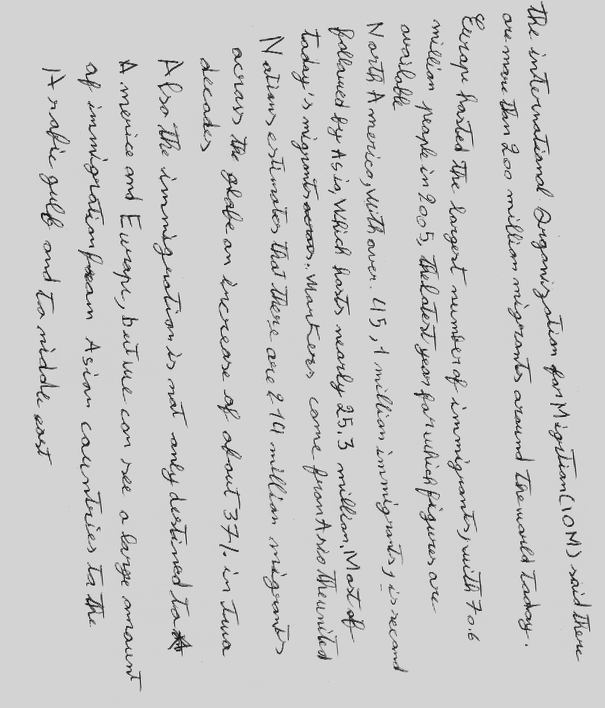 the international Organization for Migrtion (IOM) said there
are more than 200 million migrants around the world today.
Europe hosted the largest number of immigrants, with 70.6
million people in 2005, the latest year for which figures are
available
North America, with over. 45,1 million immigrants, is second
followed by Asia, which hosts nearly 25.3 million. Most of
today's migrants workers come from Asia the united
Nations estimates that there are 214 million migrants
across the globe an increase of about 37% in two
decades
Also the immigration is not only destined to
America and Europe, but we can see a large amount
of immigration from Asian countries to the
Arabic gulf and to middle east